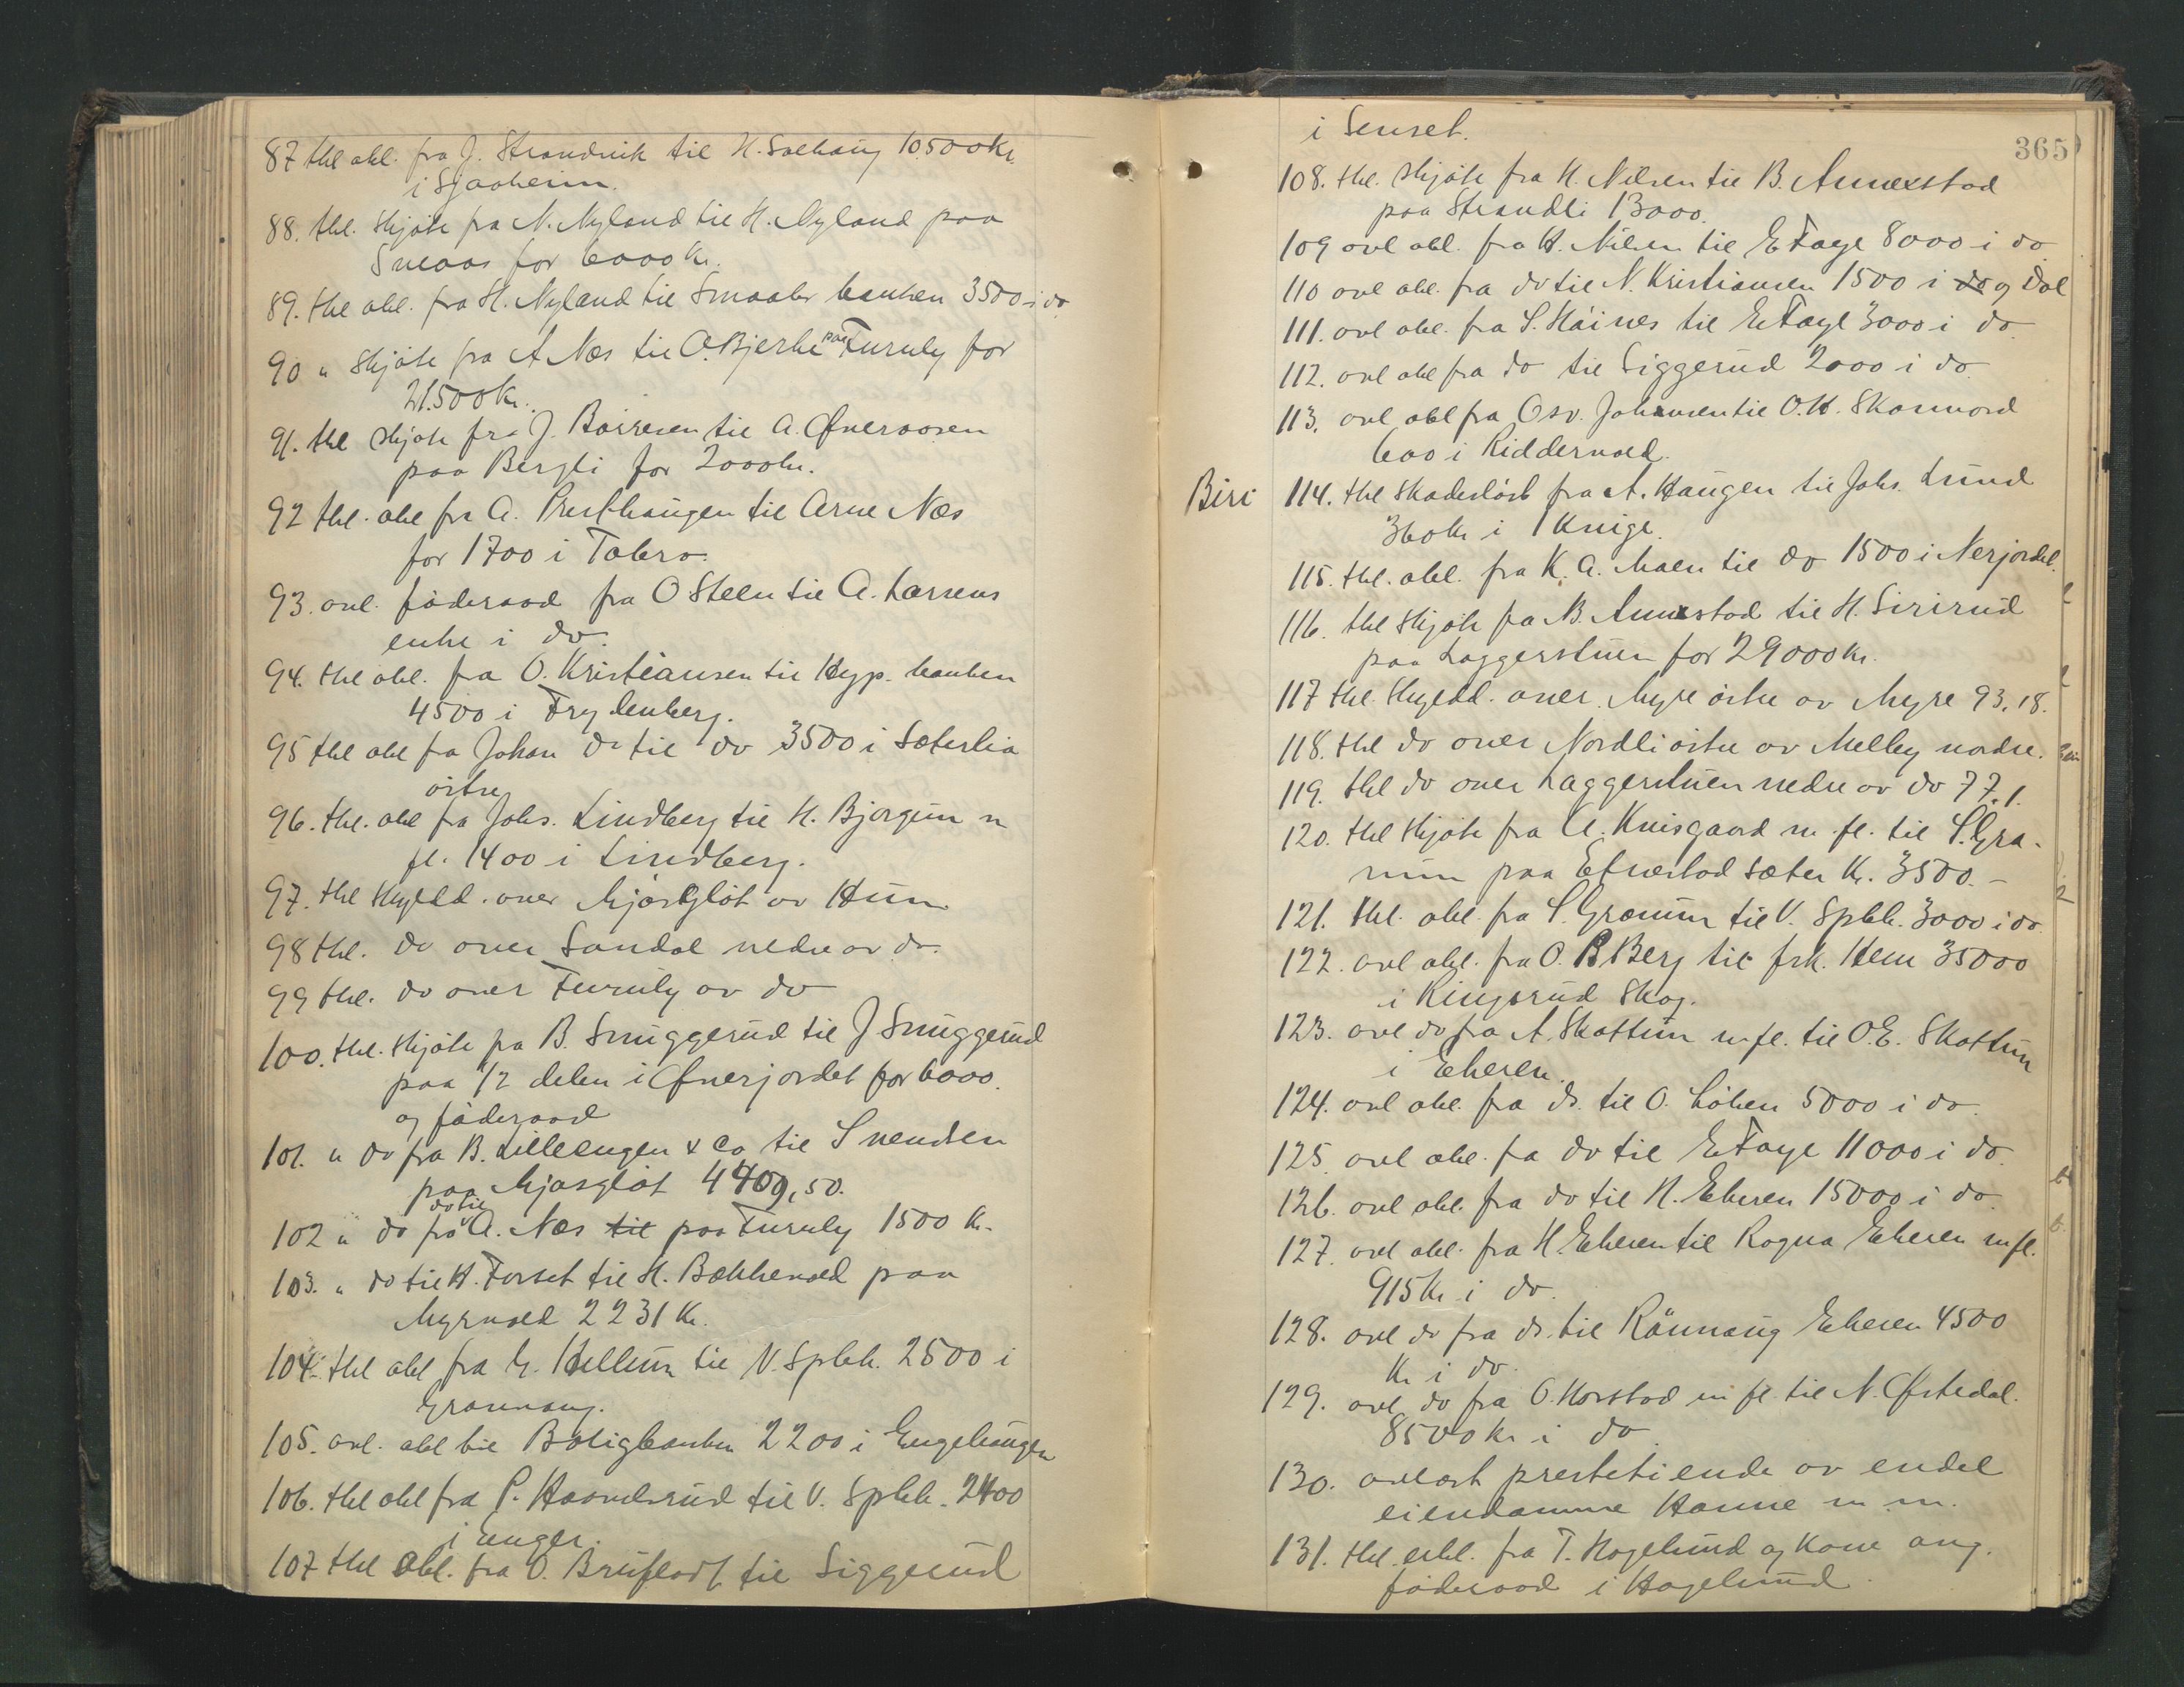 87 thl obl. fra J. Strandvik til H. Solhaug 10500 kr.
i Sjaaheim.
88. thl. skjöte fra N. Nyland til H. Nyland paa
Sneaas for 6000 kr.
89. thl obl. fra H. Nyland til Smaabr banken 3500 i do
90 " Skjöte fra A Næs til O. Bjerke paa Furuly for
21.500 kr.
91. thl skjöte fra J. Börresen til A. Øveraasen
paa Bergli for 2000 kr.
92 thl. obl fr A. Presthaugen til Arne Næs
for 1700 i Tobro.
93. avl. föderaad fra O Steen til A. Larsens
enke i do.
94. thl obl. fra O. Kristiansen til Hyp. banken
4500 i Frydenberg.
95 thl obl fra Johan do til do 3500 i Sæterlia
östre
96. thl. obl fra Johs. Lindberg til H. Bjørgun m
fl. 1400 i Lindberg.
97. thl Skyldd. over Mjøsgløt av Hun
98 thl. do over Sandal nedre av do.
99 thl. do over Furuly av do
100. thl. skjöte fra B. Smuggerud til J Smuggerud
paa 1/2 delen i Øverjordet for 6000.
og föderaad
101. " do fra B. Lilleengen & Co til Svendsen
paa Mjøsgløt 4409,50.
do til
102 " do fra A. Næs til paa Furuly 1500 kr.
103. " do til H. Forset til H. Bækkevold paa
Myrvold 2231 kr.
104. thl obl fra G. Hellum til V. Spbk. 2500 i
Granvang.
105. avl. obl til Boligbanken 2200 i Engehaugen
106. thl obl fra P. Haandsrud til V. Spbk. 2400
i Enger.
107 thl obl. fra O. Bruflodt til Siggerud
365
i Senset.
108. thl. skjöte fra H. Nilsen til B. Annexstad
paa Strandli 13000.
109 avl obl. fra H. Nilsen til E Faye 8000 i do
110 avl obl. fra do til N. Kristiansen 1500 i do og Dal
111. avl obl. fra S. Höines til E Faye 3000 i do
112. avl obl fra do til Siggerud 2000 i do.
113. avl obl fra Osv. Johansen til O. H. Skonnord
600 i Riddervold.
Biri 114. thl skadeslöst fra A. Haugen til Johs. Lund
360 kr i Knige.
115. thl. obl. fra K. A. Moen til do 1500 i Nerjordet.
116. thl skjöte fra B. Annexstad til H. Sirirud
paa Laggerstuen for 29000 kr.
117 thl. Skyldd. over Myre östre av Myre 93,18.
118. thl do over Nordli östre av Melby nordre.
119. thl do over Laggerstuen nedre av do 77,1.
120. thl skjöte fra A. Knisgaard m. fl. til S. Gra-
num paa Efnestad sæter kr. 3500.-
121. thl. obl. fra S. Granum til V. Spbk. 3000 i do.
122. avl obl. fra O. B Berg til frk. Hem 35000
i Ringsrud Skog.
123. avl do fra A. Skattum m. fl. til O. E. Skattum
i Ekeren.
124. avl obl. fra do. til O. Löken 5000 i do.
125. avl obl. fra do til E Faye 11000 i do.
126. avl obl. fra do til H. Ekeren 15000 i do.
127. avl obl. fra H Ekeren til Ragna Ekeren m fl.
915 kr i do.
128. avl do fra do. til Rönnaug Ekeren 4500
kr i do.
129. avl do fra O. Horstad m fl til N. Øfstedal.
8500 kr i do.
130. avlest prestetiende av endel
eiendomme Honne m. m.
131. thl erkl. fra T. Hagelund og Kone ang.
föderaad i Hagelund